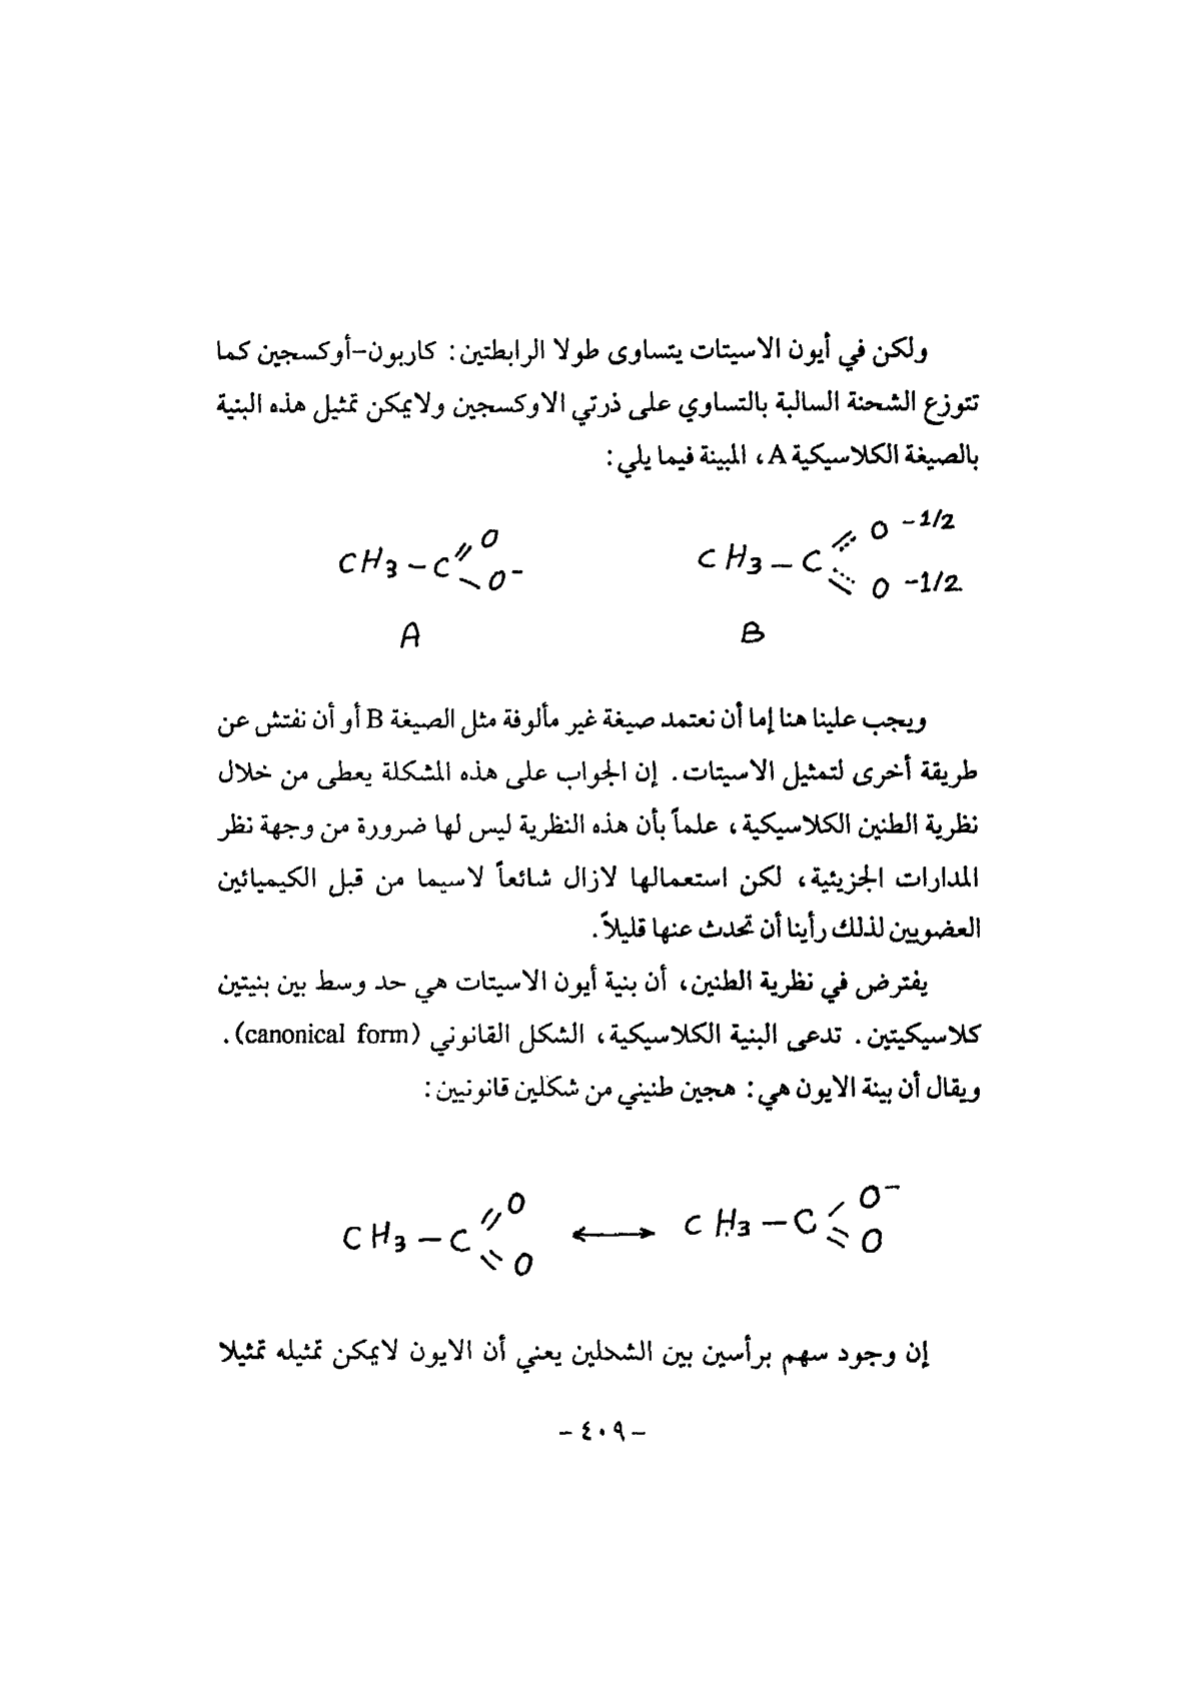 ولكن في أيون الاسيتات يتساوى طولا الرابطتين: كاربون-أوكسجين كما
تتوزع الشحنة السالبة بالتساوي على ذرتي الاوكسجين ولايمكن تمثيل هذه البنية
بالصيغة الكلاسيكية A، المبينة فيما يلي:
CH3 – C O O-
CH3 – C O -1/2 O -1/2
A B
ويجب علينا هنا إما أن نعتمد صيغة غير مألوفة مثل الصيغة B أو أن نفتش عن
طريقة أخرى لتمثيل الاسيتات. إن الجواب على هذه المشكلة يعطى من خلال
نظرية الطنين الكلاسيكية، علماً بأن هذه النظرية ليس لها ضرورة من وجهة نظر
المدارات الجزيئية، لكن استعمالها لازال شائعاً لاسيما من قبل الكيميائين
العضويين لذلك رأينا أن تحدث عنها قليلاً.
يفترض في نظرية الطنين، أن بنية أيون الاسيتات هي حد وسط بين بنيتين
كلاسيكيتين. تدعى البنية الكلاسيكية، الشكل القانوني (canonical form).
ويقال أن بينة الايون هي: هجين طنيني من شكلين قانونيين:
CH3 – C O O ⟷ CH3 – C O- O
إن وجود سهم برأسين بين الشحلين يعني أن الايون لايمكن تمثيله تمثيلا
- ٤٠٩ -